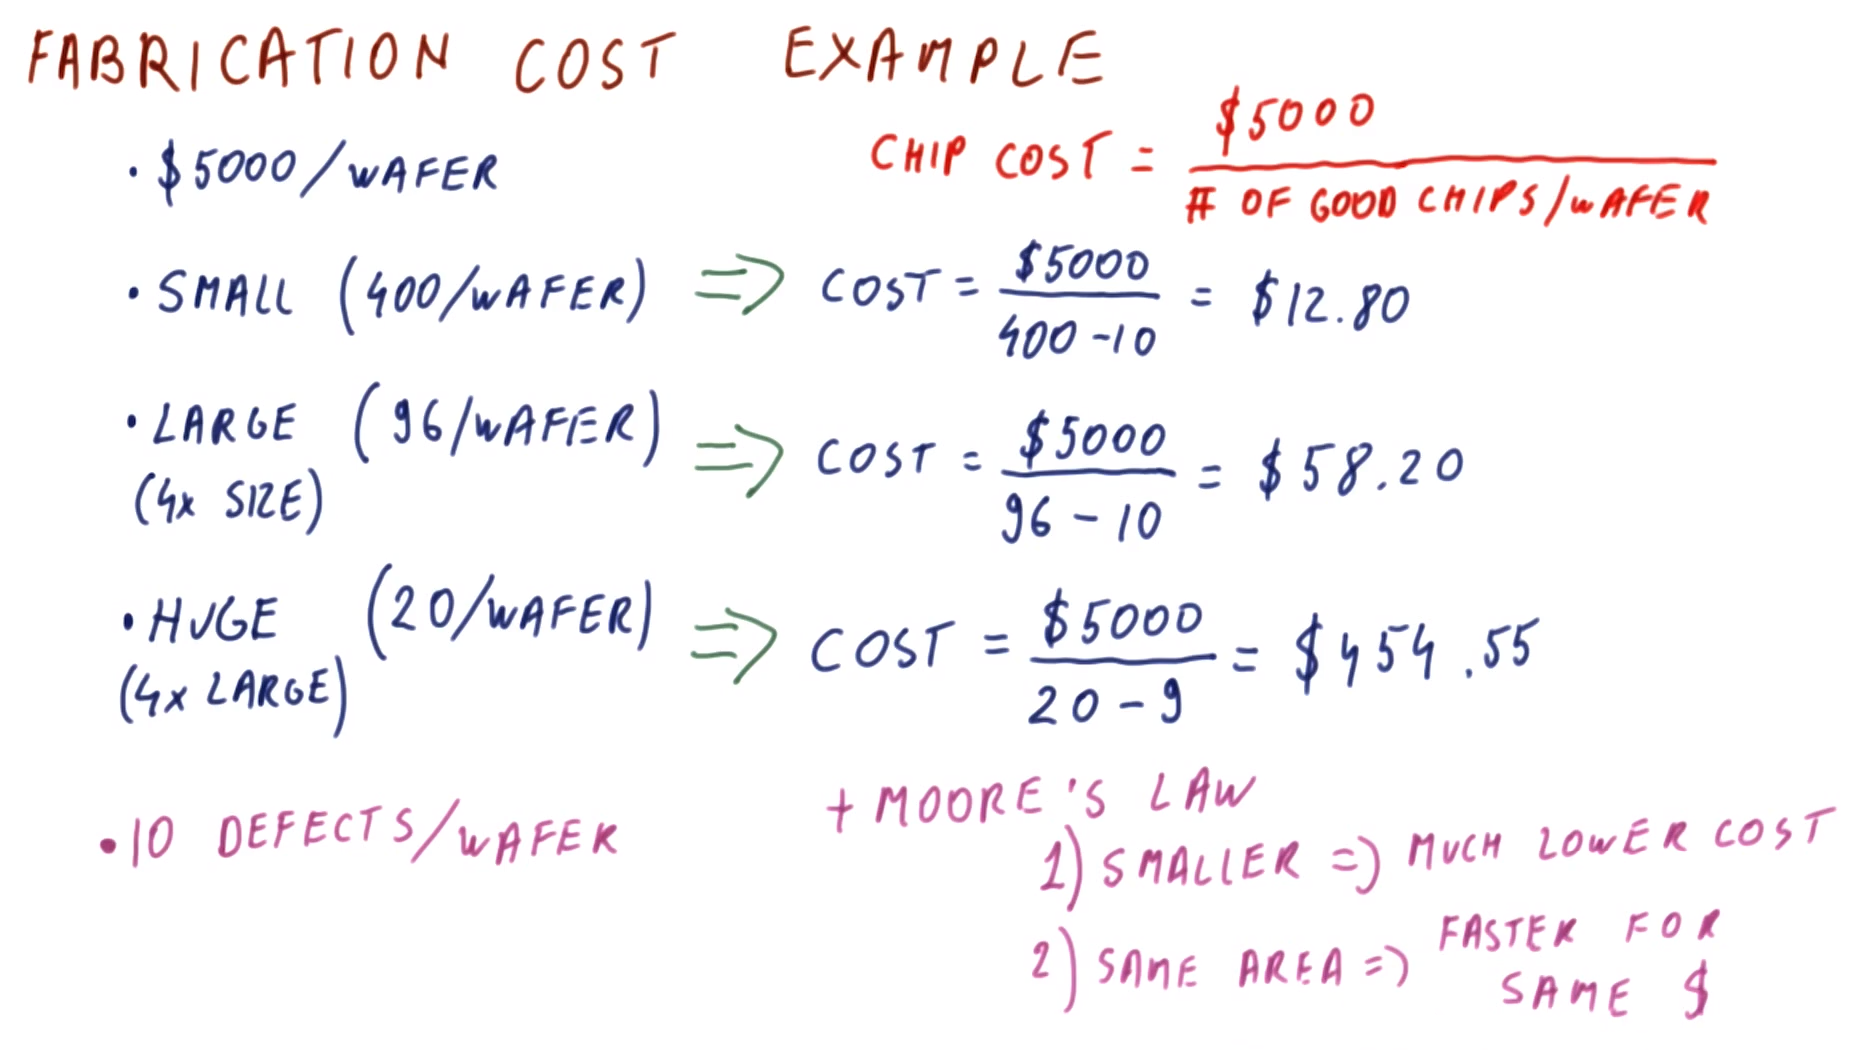 FABRICATION COST EXAMPLE
• $5000/WAFER
CHIP COST = $5000 / # OF GOOD CHIPS/WAFER
• SMALL (400/WAFER) ⇒ COST = $5000 / 400-10 = $12.80
• LARGE (96/WAFER) ⇒ COST = $5000 / 96-10 = $58.20
(4x SIZE)
• HUGE (20/WAFER) ⇒ COST = $5000 / 20-9 = $454.55
(4x LARGE)
• 10 DEFECTS/WAFER
+ MOORE'S LAW
1) SMALLER => MUCH LOWER COST
2) SAME AREA => FASTER FOR
SAME $